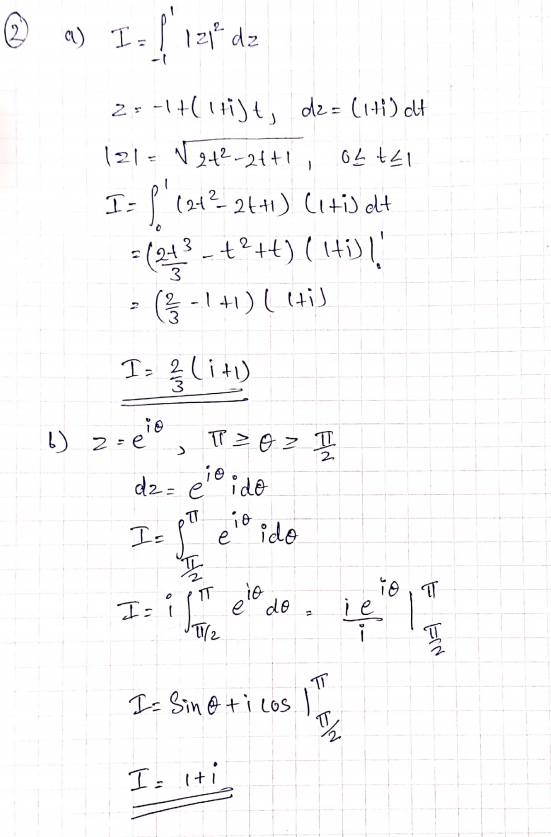 ② a) I = ∫₋₁¹ |z|² dz
z = -1+(1+i)t, dz = (1+i) dt
|z| = √(2t²-2t+1), 0≤ t≤1
I = ∫₀¹ (2t²-2t+1) (1+i) dt
= (2t³/3 - t²+t) (1+i) |₀¹
= (2/3 -1+1) (1+i)
I = 2/3 (i+1)
b) z = e^{iθ}, π ≥ θ ≥ π/2
dz = e^{iθ} i dθ
I = ∫_{π/2}^{π} e^{iθ} i dθ
I = i ∫_{π/2}^{π} e^{iθ} dθ = i e^{iθ}/i |_{π/2}^{π}
I = Sin θ + i cos |_{π/2}^{π}
I = 1+i